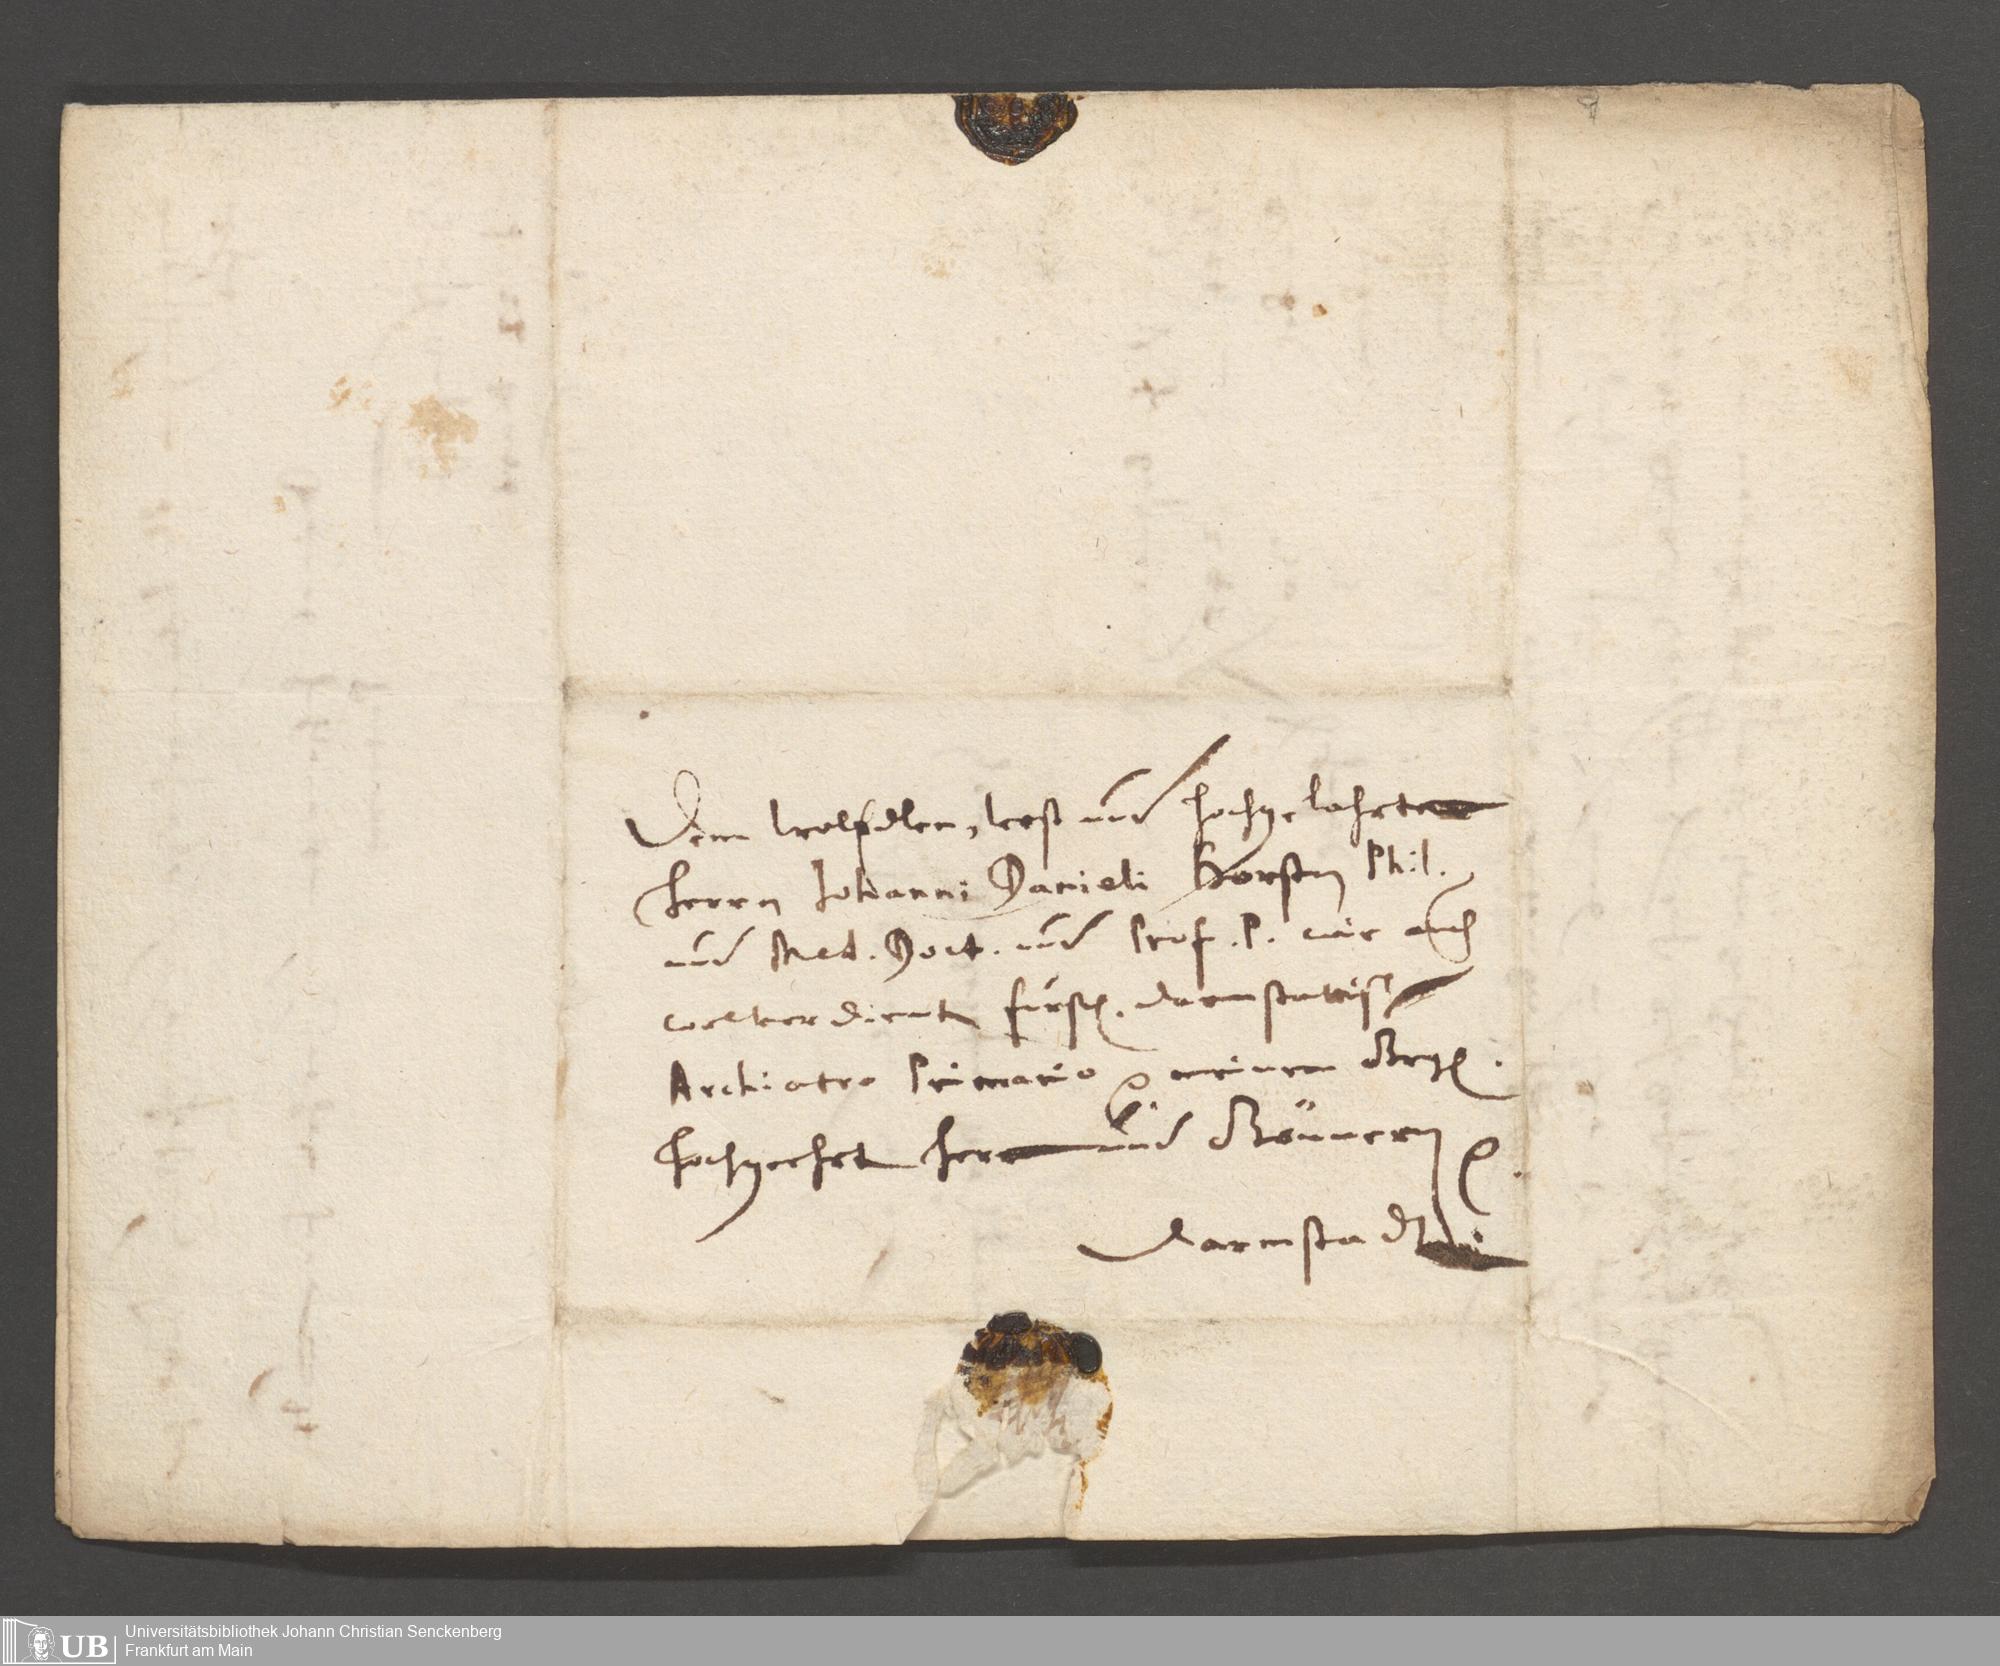 Dem WolEdlen, Vest und Hochgelahrten
Herrn Johanni Danieli Horsten Phil.
und Med. Doct. und Prof. P. wie auch
wolverdienten fürstl. Darmstattisch
Archiatro Primario meinem
Hochgeehrten Herrn und Gönnern
Darmstadt
Universitätsbibliothek Johann Christian Senckenberg
Frankfurt am Main
UB